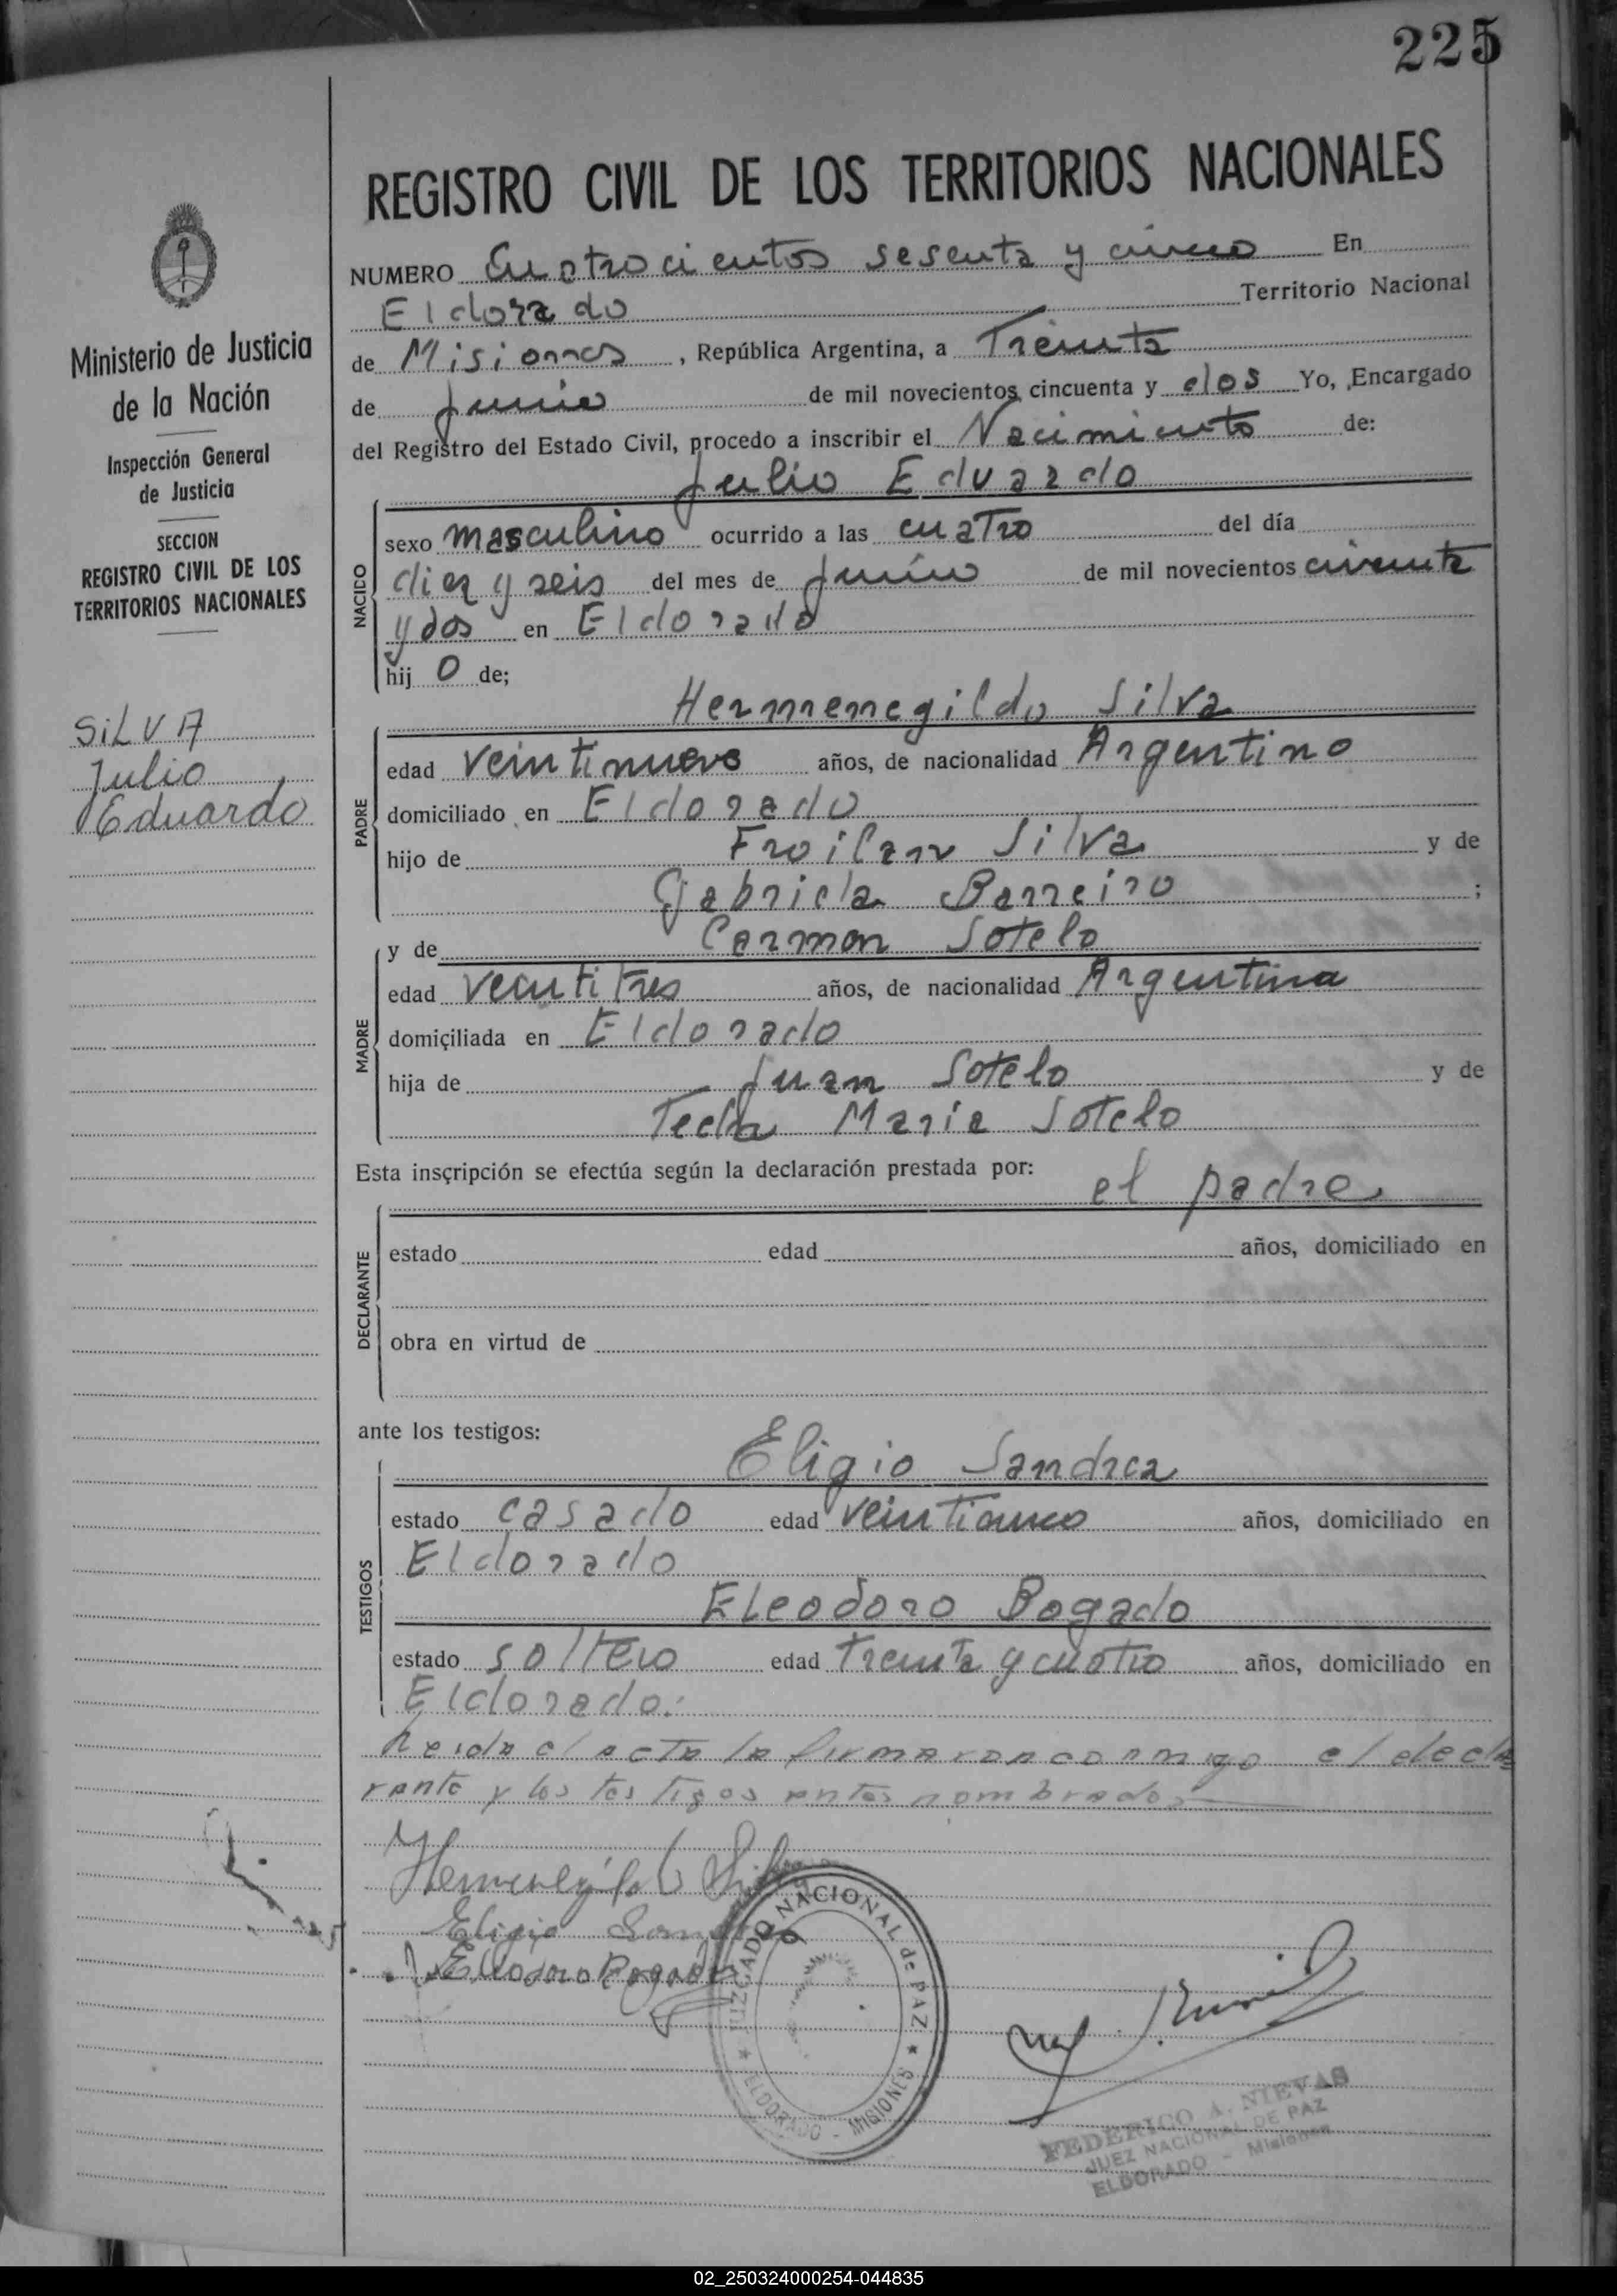 225
REGISTRO CIVIL DE LOS TERRITORIOS NACIONALES
Ministerio de Justicia
de la Nación
Inspección General
de Justicia
SECCION
REGISTRO CIVIL DE LOS
TERRITORIOS NACIONALES
SILVA
Julio
Eduardo
NUMERO Cuatrocientos sesenta y cinco En
Eldorado Territorio Nacional
de Misiones, República Argentina, a Treinta
de Junio de mil novecientos cincuenta y dos Yo, Encargado
del Registro del Estado Civil, procedo a inscribir el Nacimiento de:
Julio Eduardo
NACIDO
sexo masculino ocurrido a las cuatro del día
diez y seis del mes de Junio de mil novecientos cincuenta
y dos en Eldorado
hij o de;
Hermenegildo Silva
PADRE
edad veintinueve años, de nacionalidad Argentino
domiciliado en Eldorado
hijo de Froilan Silva y de
Gabriela Barreiro ;
y de Carmen Sotelo
MADRE
edad veintitres años, de nacionalidad Argentina
domiciliada en Eldorado
hija de Juan Sotelo y de
Tecla Maria Sotelo
Esta inscripción se efectúa según la declaración prestada por: el padre
DECLARANTE
estado edad años, domiciliado en
obra en virtud de
ante los testigos:
Eligio
TESTIGOS
estado casado edad veinticinco años, domiciliado en
Eldorado
Eleodoro Bogado
estado soltero edad treinta y cuatro años, domiciliado en
Eldorado.
Leida el acta la firmaron conmigo el decla
rante y los testigos antes nombrados
Hermenegildo Silva
Eligio
Eleodoro Bogado
JUZGADO NACIONAL de PAZ
ELDORADO - MISIONES
FEDERICO A. NIEVAS
JUEZ NACIONAL DE PAZ
ELDORADO - Misiones
02_250324000254-044835